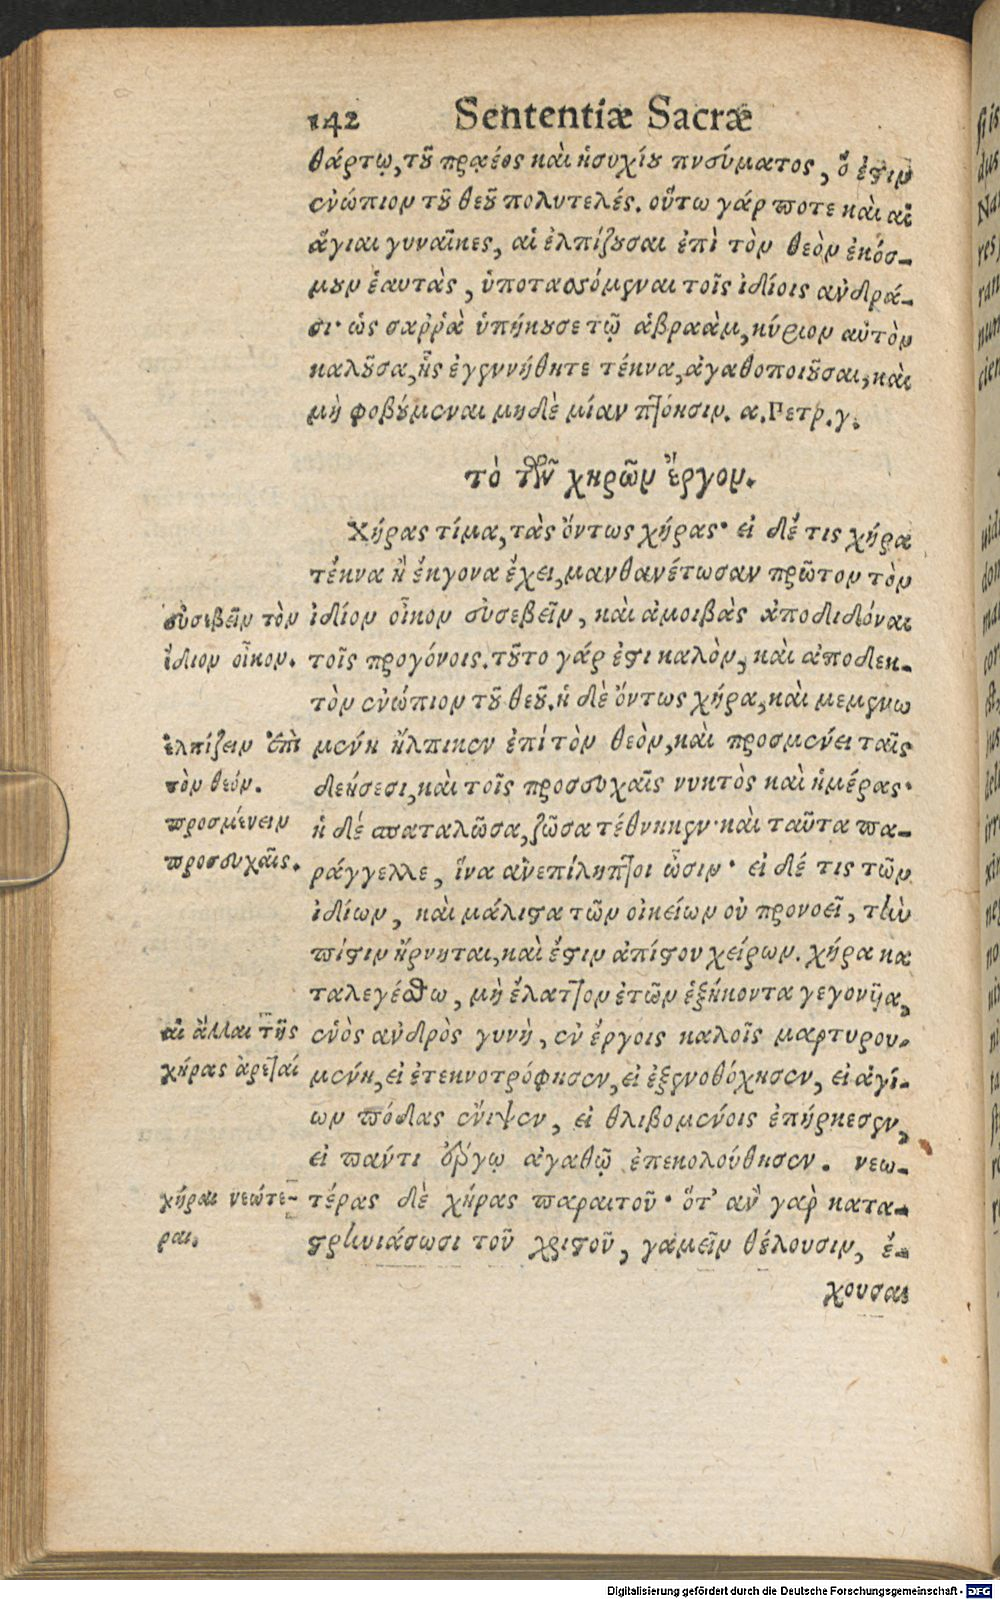 142 Sententiæ Sacræ
θάρτῳ, τοῦ πρᾳέος καὶ ἡσυχίου πνεύματος, ὅ ἐστιν
ἐνώπιον τοῦ θεοῦ πολυτελές. οὕτω γάρ ποτε καὶ αἱ
ἅγιαι γυναῖκες, αἱ ἐλπίζουσαι ἐπὶ τὸν θεὸν ἐκόσ-
μουν ἑαυτὰς, ὑποτασσόμεναι τοῖς ἰδίοις ἀνδρά-
σι· ὡς σαῤῥὰ ὑπήκουσε τῷ ἀβραὰμ, κύριον αὐτὸν
καλοῦσα, ἧς ἐγεννήθητε τέκνα, ἀγαθοποιοῦσαι, καὶ
μὴ φοβούμεναι μηδὲ μίαν πτόησιν. α. Πετρ. γ.
τὸ τῶν χηρῶν ἔργον.
Χήρας τίμα, τὰς ὄντως χήρας· εἰ δέ τις χήρα
τέκνα ἢ ἔκγονα ἔχει, μανθανέτωσαν πρῶτον τὸν
εὐσεβεῖν τὸν ἰδίον οἶκον εὐσεβεῖν, καὶ ἀμοιβὰς ἀποδιδόναι
ἴδιον οἶκον. τοῖς προγόνοις. τοῦτο γάρ ἐστι καλὸν, καὶ ἀποδεκ-
τὸν ἐνώπιον τοῦ θεοῦ. ἡ δὲ ὄντως χήρα, καὶ μεμενω
ἐλπίζειν ἐπὶ μένη ἤλπικεν ἐπί τὸν θεὸν, καὶ προσμένει ταῖς
τὸν θεόν. δεήσεσι, καὶ τοῖς προσευχαῖς νυκτὸς καὶ ἡμέρας·
προσμένειν ἡ δέ σπαταλῶσα, ζῶσα τέθνηκεν· καὶ ταῦτα πα-
προσευχαῖς. ράγγελλε, ἵνα ἀνεπίληπτοι ὦσιν· εἰ δέ τις τῶν
ἰδίων, καὶ μάλιστα τῶν οἰκείων οὐ προνοεῖ, τὴν
πίστιν ἤρνηται, καὶ ἔστιν ἀπίστου χείρων. χήρα κα
ταλεγέσθω, μὴ ἔλαττον ἐτῶν ἑξήκοντα γεγονῦα,
αἱ ἄλλαι τῆς ἑνὸς ἀνδρὸς γυνὴ, ἐν ἔργοις καλοῖς μαρτυρου-
χήρας ἀρεταί μένη, εἰ ἐτεκνοτρόφησεν, εἰ ἐξενοδόχησεν, εἰ ἁγί-
ων πόδας ἔνιψεν, εἰ θλιβομένοις ἐπήρκεσεν,
εἰ παντὶ ἔργῳ ἀγαθῷ ἐπεκολούθησεν. νεω-
χήραι νεώτε- τέρας δὲ χήρας παραιτοῦ· ὅτ' ἂν γὰρ κατα-
ραι. στρηνιάσωσι τοῦ χριστοῦ, γαμεῖν θέλουσιν, ἔ-
χουσαι
Digitalisierung gefördert durch die Deutsche Forschungsgemeinschaft - DFG